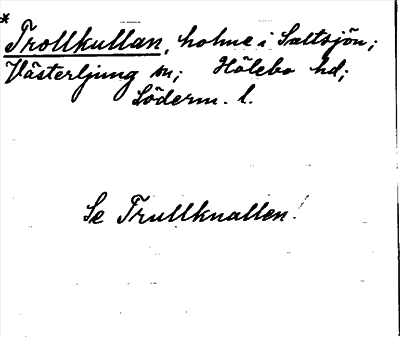 *
Trollkullan, holme i Saltsjön;
Västerljung sn; Hölebo hd;
Söderm. l.
Se Trullknallen!